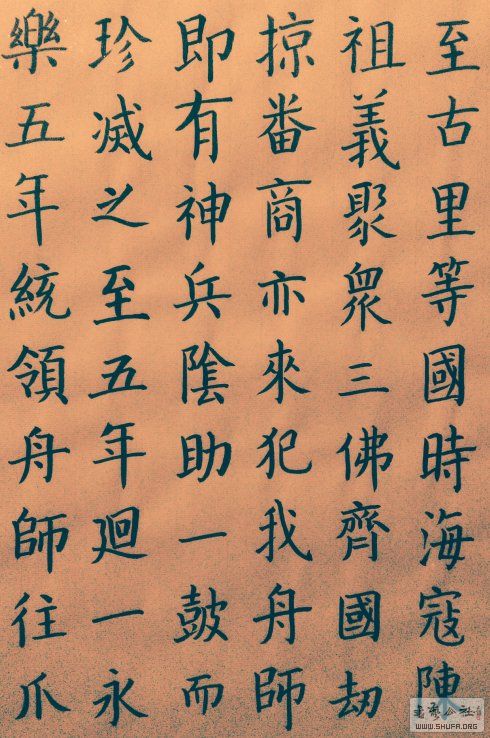 至古里等國時海寇陳
祖義聚眾三佛齊國劫
掠番商亦來犯我舟師
即有神兵陰助一皷而
珍滅之至五年廻一永
樂五年統領舟師往爪
WWW.SHUFA.ORG